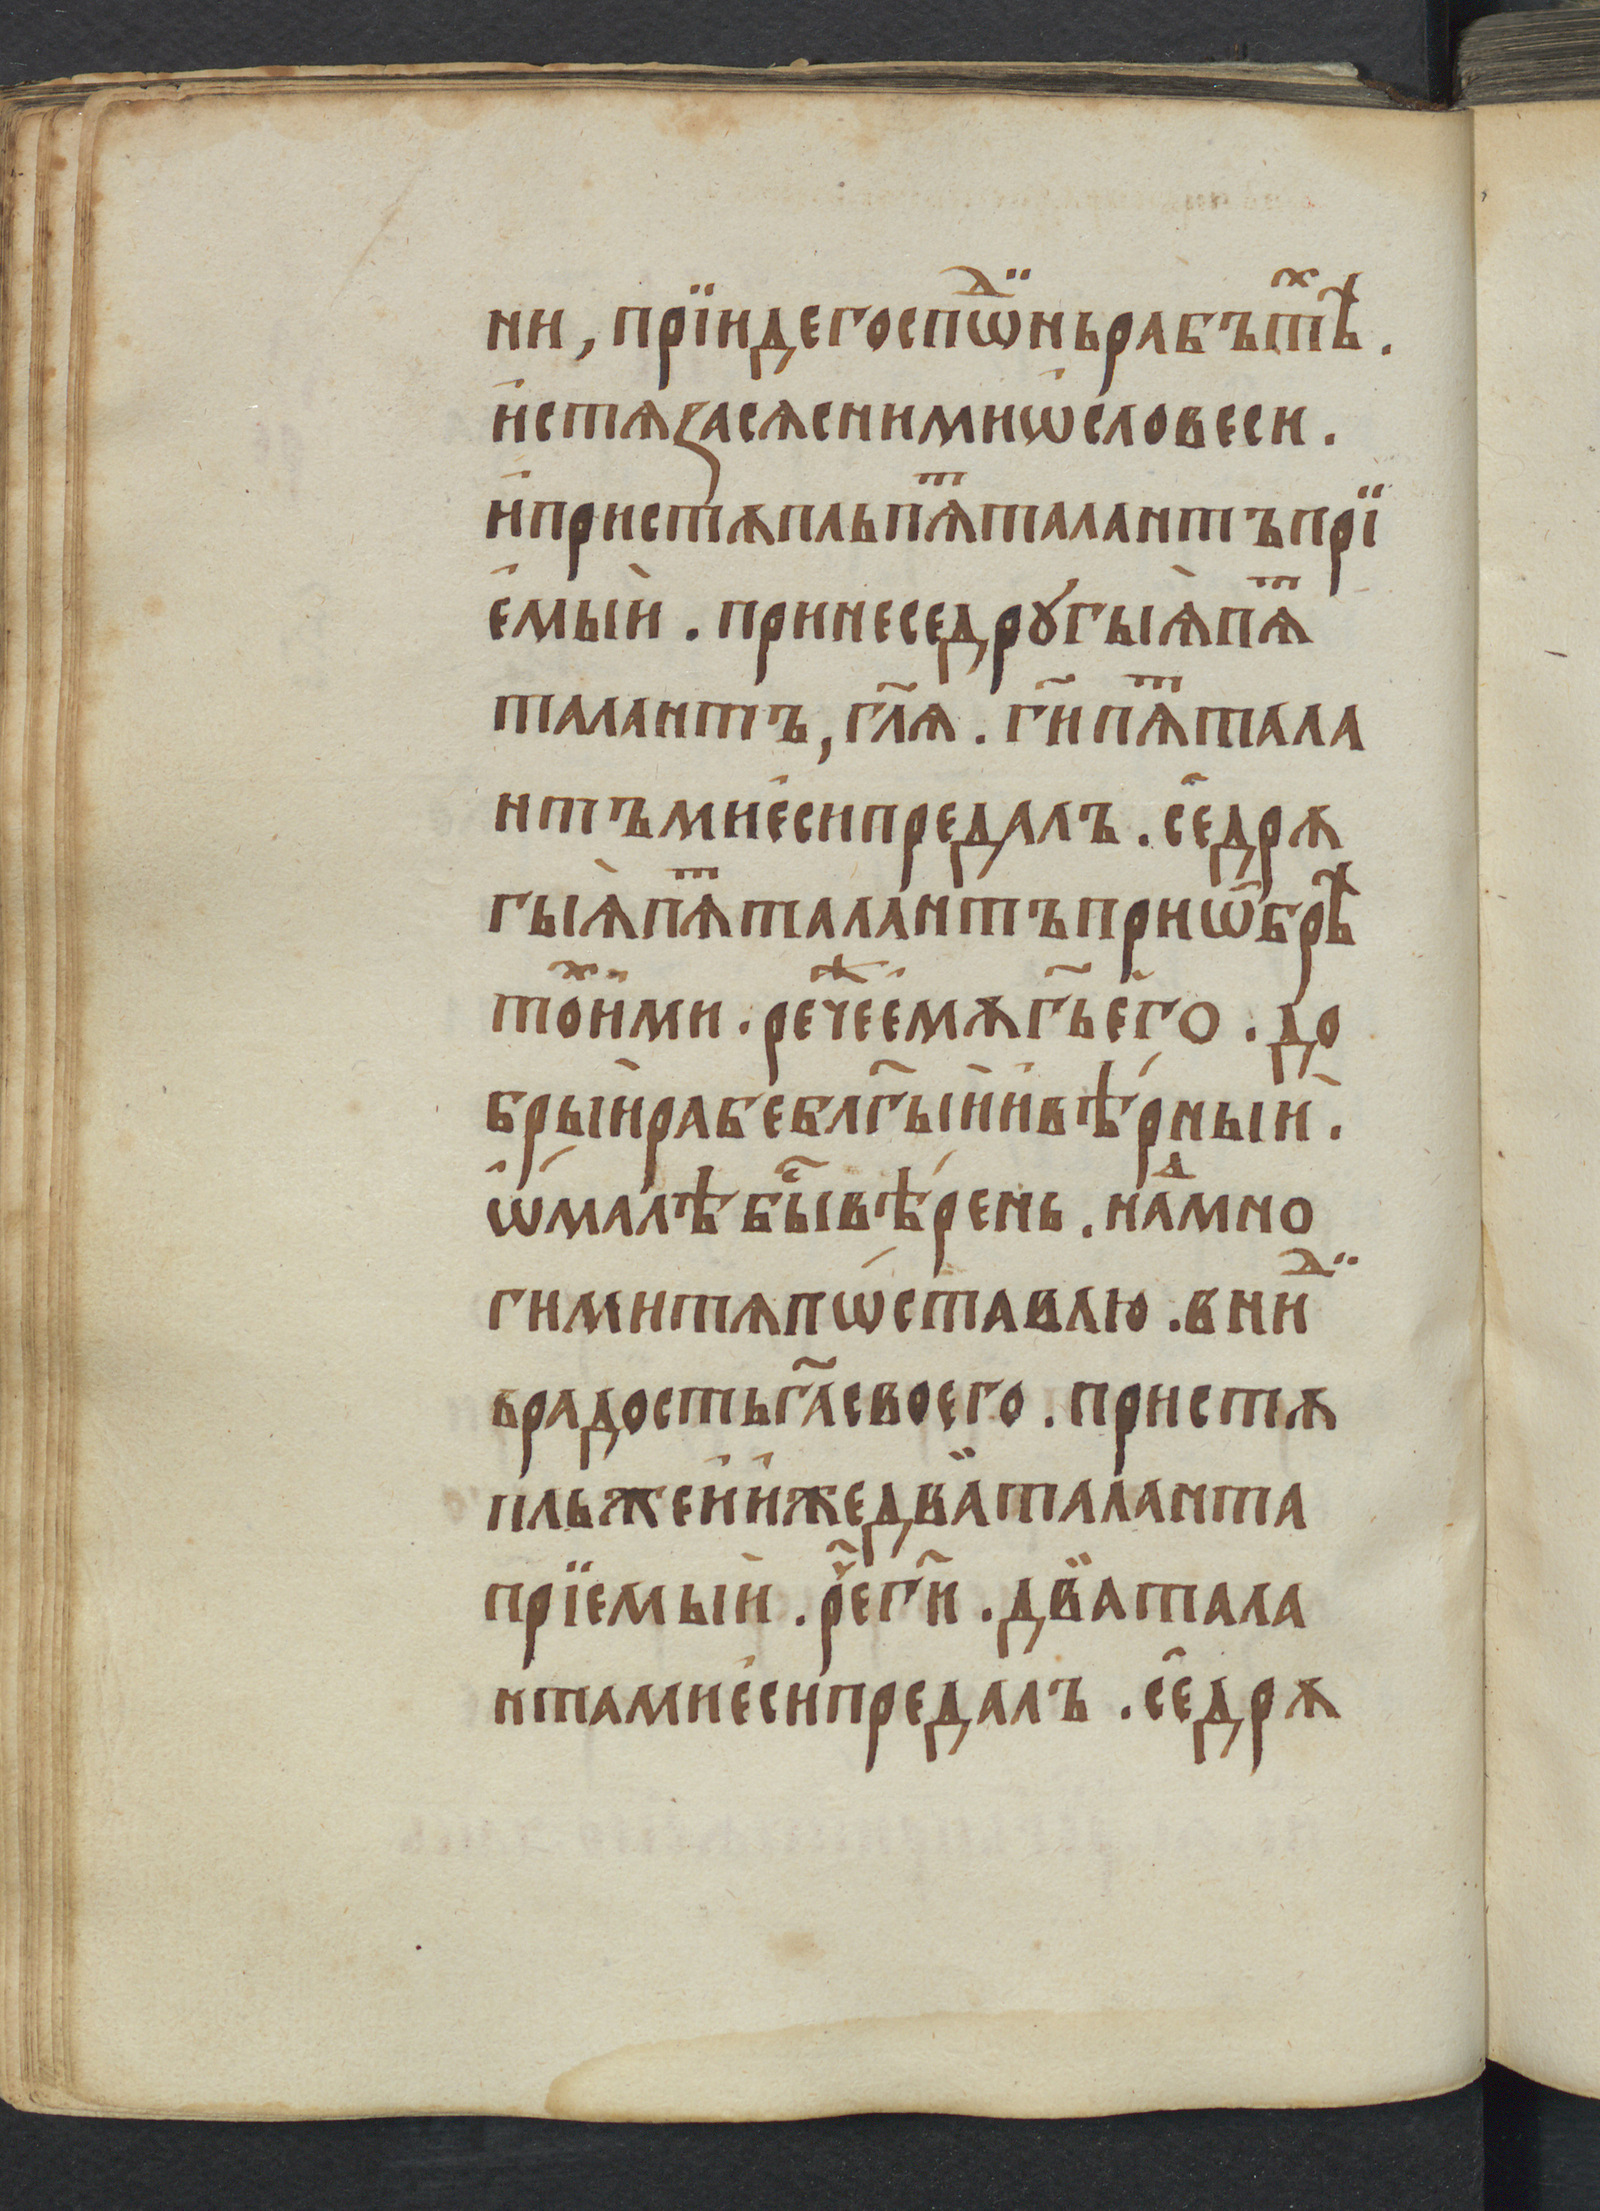 ни, прїидегоспⷣѡ҅нърабътѣⷯ.
и҆стѧзасѧснимиѡ҆словеси.
и҆пристѫпльпѧⷮталантъпрї
е҆мыи҆. принеседрꙋгыѧ҆пѧⷮ
талантъ, гл҃ѧ. ги҃пѧⷮтала
нтъмие҆сипредалъ. се҆дрѫ
гыѧ҆пѧⷮталантъприѡ҆брѣ
тоⷯи҆ми. реⷱ҇ее҆мѫгь҃е҆го. до
брыи҆рабеблг҃ыи҆и҆вѣ́рныи҆.
ѡ҆ма́лѣбы҃вѣ́рень. наⷣмно
гимитѧпѡ́ставлю. вниⷣ
врадостьга҃своего. пристѫ
пльжеи҆и҆жедва̏таланта
прїемыи҆. рⷱ҇еги҃. два̏тала
нтамие҆сипредалъ. се҆дрѫ